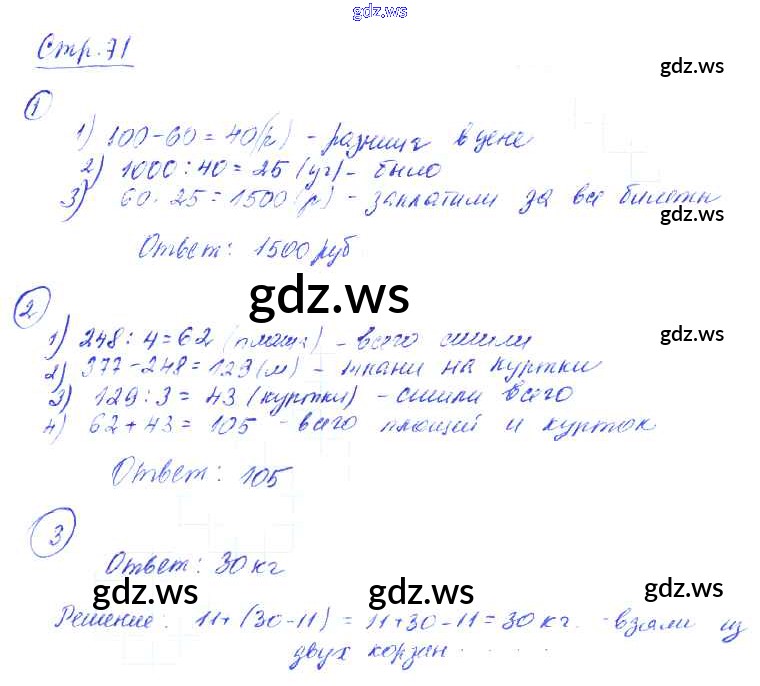 gdz.ws
Стр. 71
gdz.ws
1
1) 100-60=40(р) - разница в цене
2) 1000:40=25 (уч) - было
3) 60·25=1500(р) - заплатили за все билеты
gdz.ws
Ответ: 1500 руб
gdz.ws
2
gdz.ws
1) 248:4=62 (плаща) - всего сшили
2) 377-248=129(м) - ткани на куртки
3) 129:3=43 (куртки) - сшили всего
4) 62+43=105 - всего плащей и курток
Ответ: 105
3
Ответ: 30 кг
gdz.ws gdz.ws gdz.ws
Решение: 11+(30-11)=11+30-11=30 кг. - взяли из
двух корзин
gdz.ws gdz.ws